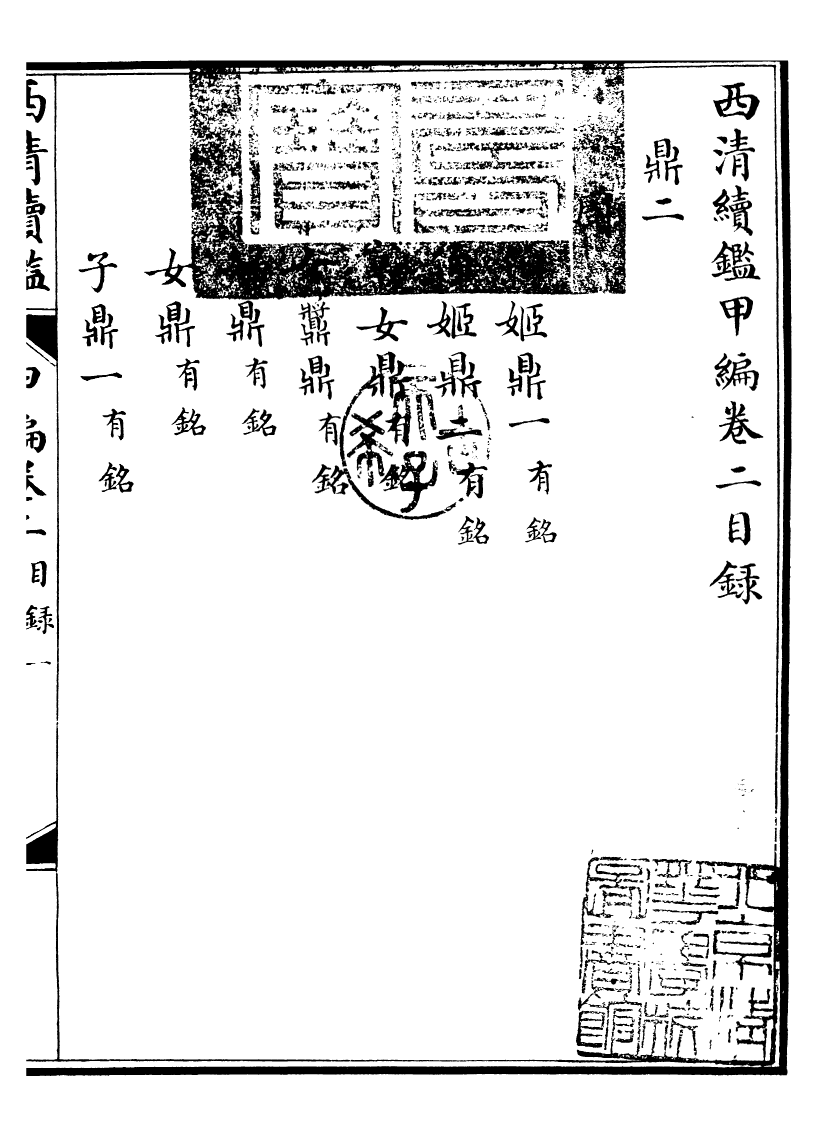 西清續鑑甲編卷二目録
鼎二
姬鼎一有銘
姬鼎二有銘
女鼎有銘
鼎有銘
鼎有銘
女鼎有銘
子鼎一有銘
西清續鑑
甲編卷二目録一